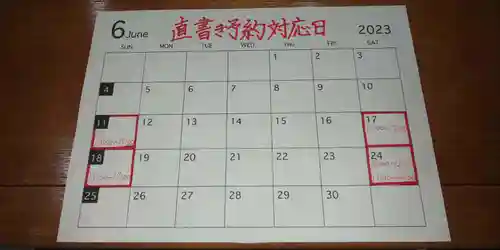 6 June 直書き予約対応日 2023
SUN MON TUE WED THU FRI SAT
1 2 3
4 5 6 7 8 9 10
11 12 13 14 15 16 17
18 19 20 21 22 23 24
25 26 27 28 29 30